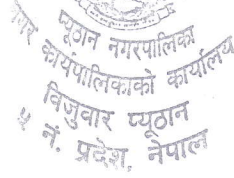 प्यूठान नगरपालिका
नगर कार्यपालिकाको कार्यालय
बिजुवार प्यूठान
५ नं. प्रदेश, नेपाल